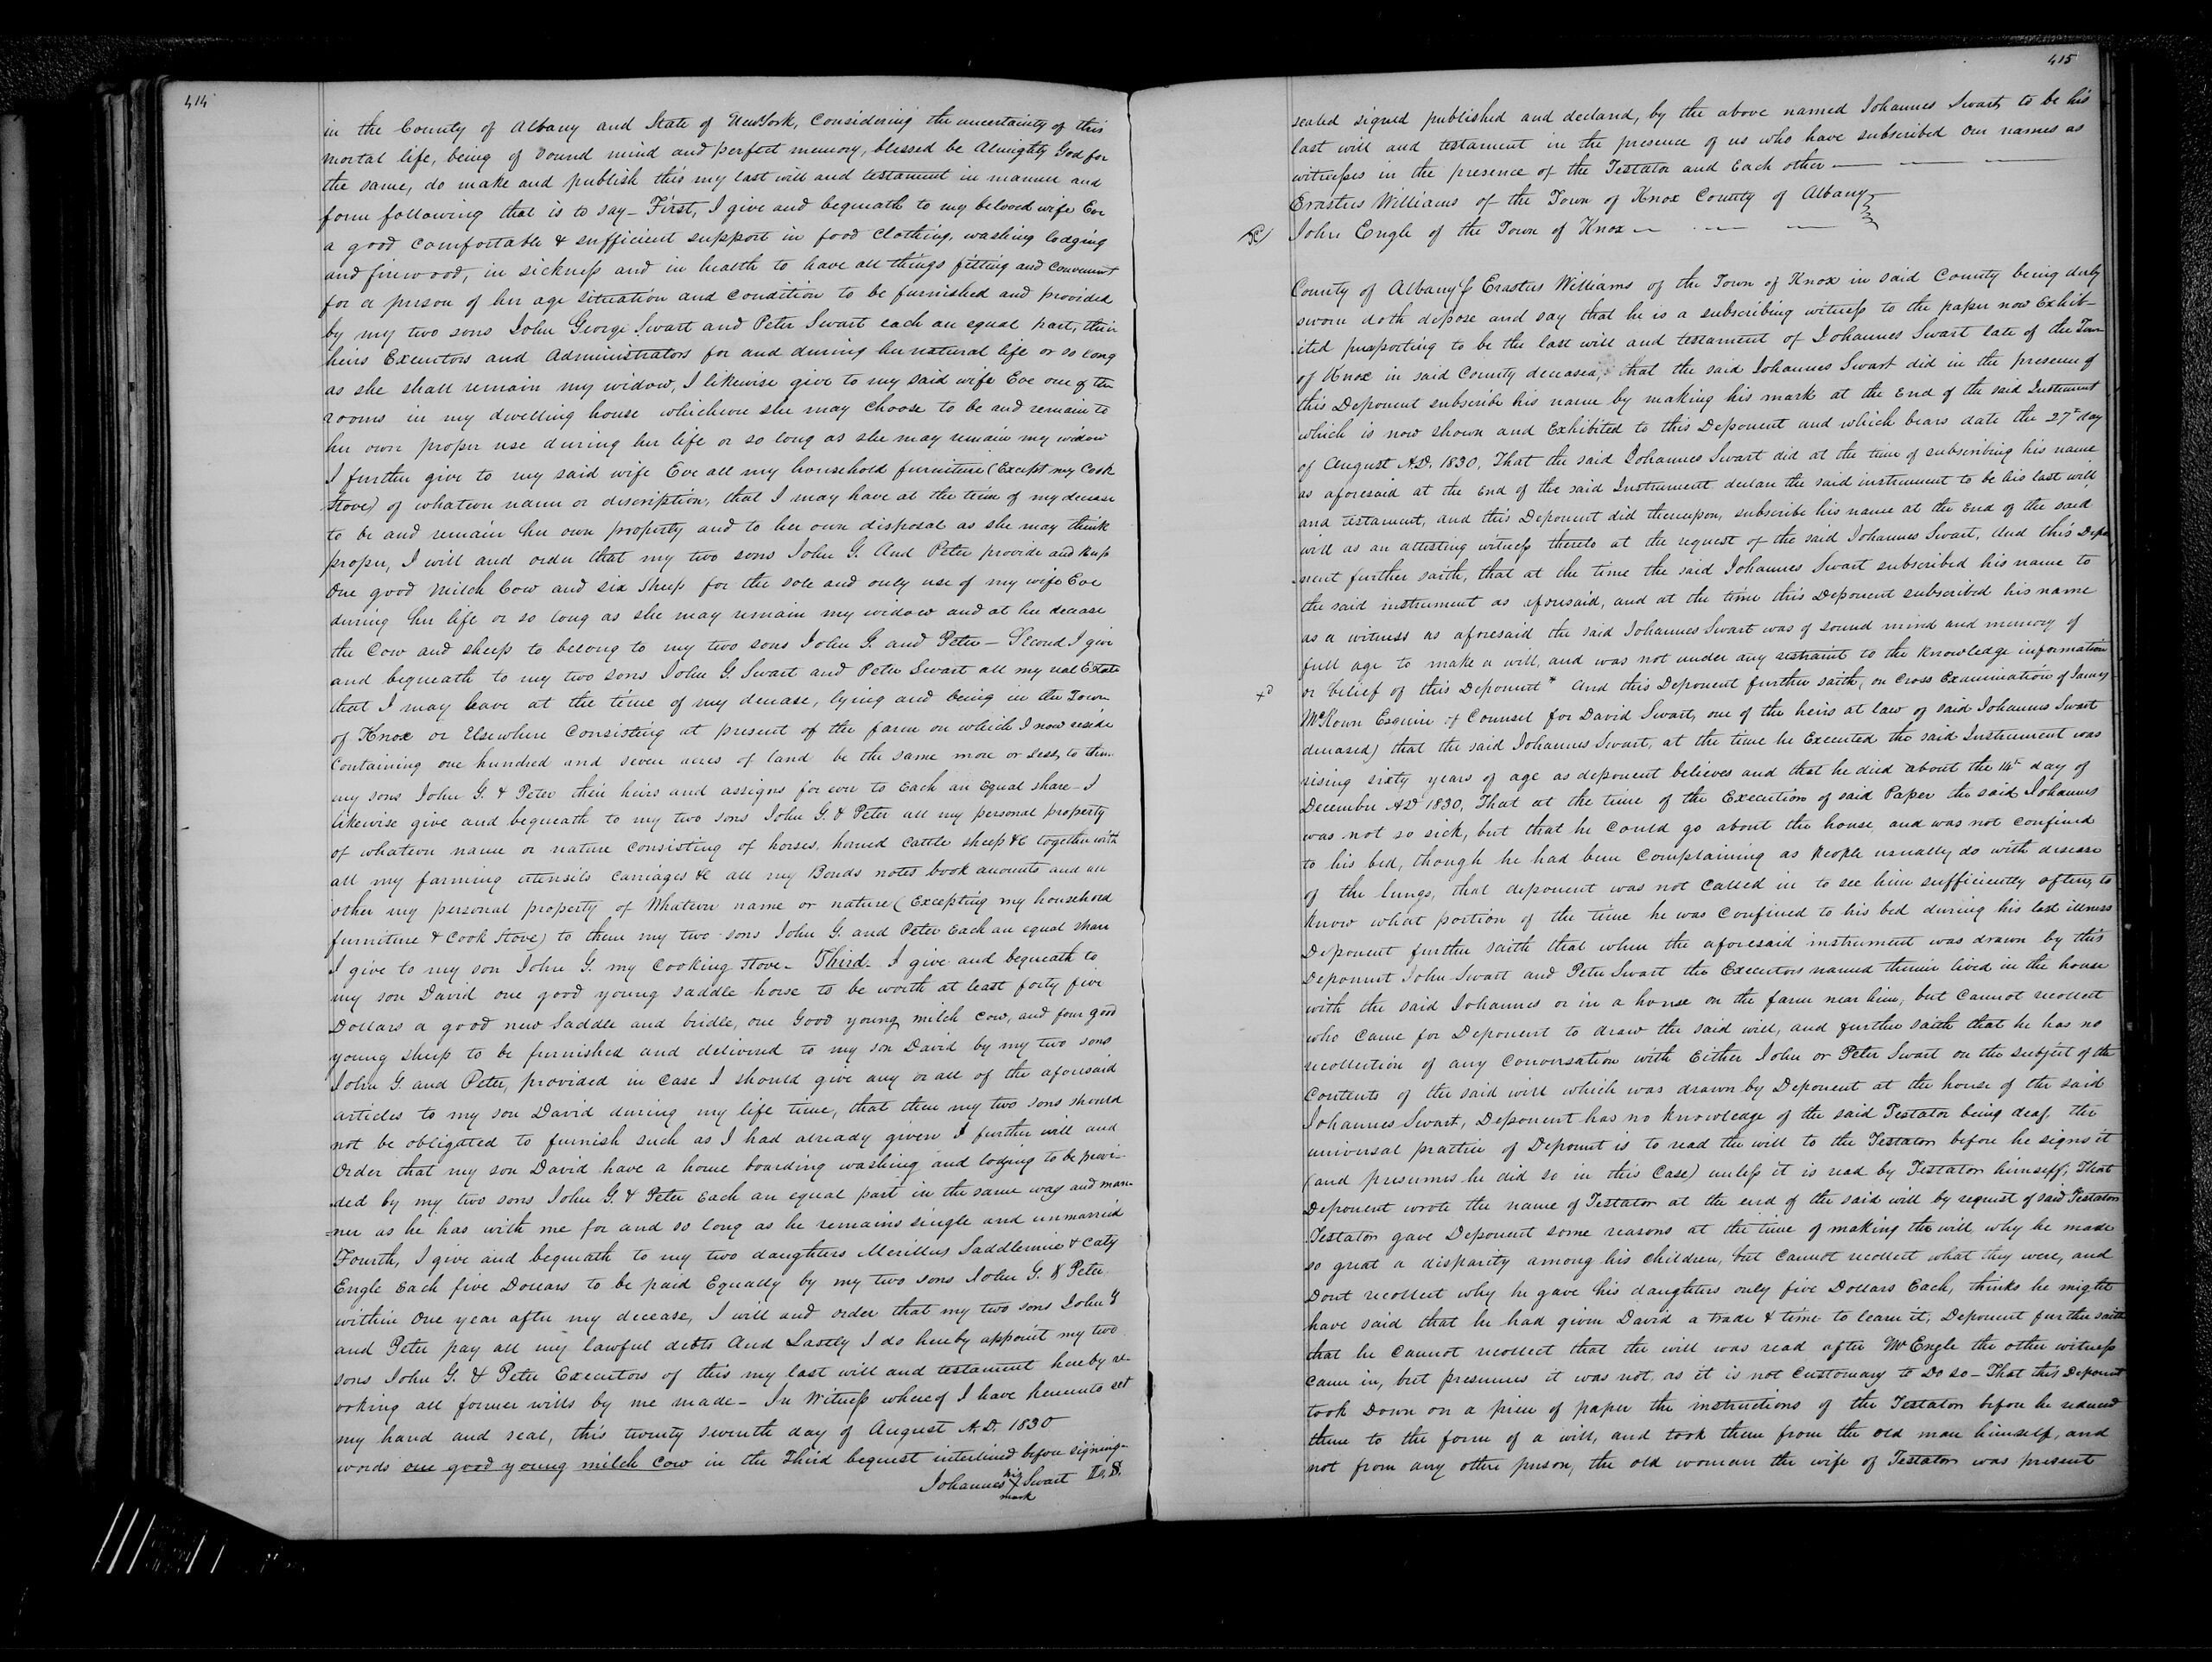 414
in the County of Albany and State of NewYork, Considering the uncertainty of this
mortal life, being of sound mind and perfect memory, blessed be Almighty God for
the same, do make and publish this my last will and testament in manner and
form following that is to say - First, I give and bequeath to my beloved wife Eve
a good comfortable & sufficient support in food Clothing, washing lodging
and firewood, in sickness and in health to have all things fitting and Convenient
for a person of her age situation and Condition to be furnished and provided
by my two sons John George Swart and Peter Swart each an equal part, their
heirs Executors and Administrators for and during her natural life or so long
as she shall remain my widow, I likewise give to my said wife Eve one of the
rooms in my dwelling house whichever she may Choose to be and remain to
her own proper use during her life or so long as she may remain my widow
I further give to my said wife Eve all my household furniture (Except my Cook
Stove) of whatever name or discription, that I may have at the time of my decease
to be and remain her own property and to her own disposal as she may think
proper, I will and order that my two sons John G. And Peter provide and keep
One good Milch Cow and six Sheep for the sole and only use of my wife Eve
during her life or so long as she may remain my widow and at her decease
the Cow and sheep to belong to my two sons John G. and Peter - Second I give
and bequeath to my two sons John G. Swart and Peter Swart all my real Estate
that I may have at the time of my decease, lying and being in the Town
of Knox or Elsewhere Consisting at present of the farm on which I now reside
Containing one hundred and seven acres of land be the same more or less, to them
my sons John G. & Peter their heirs and assigns forever to Each an Equal share - I
likewise give and bequeath to my two sons John G. & Peter all my personal property
of whatever name or nature Consisting of horses, horned Cattle sheep &c together with
all my farming utensils Carriages &c all my Bonds notes book accounts and all
other my personal property of Whatever name or nature (Excepting my household
furniture & Cook Stove) to them my two sons John G. and Peter Each an equal share
I give to my son John G. my Cooking Stove - Third. I give and bequeath to
my son David one good young saddle horse to be worth at least forty five
Dollars a good new Saddle and bridle, one Good young milch Cow, and four good
young sheep to be furnished and delivered to my son David by my two sons
John G. and Peter, provided in Case I should give any or all of the aforesaid
articles to my son David during my life time, that then my two sons should
not be obligated to furnish such as I had already given I further will and
Order that my son David have a home boarding washing and lodging to be provi-
ded by my two sons John G. & Peter Each an equal part in the same way and man-
=ner as he has with me for and so long as he remains single and unmarried
Fourth, I give and bequeath to my two daughters Merillus Saddlemire & Caty
Engle Each five Dollars to be paid Equally by my two sons John G. & Peter
within One year after my decease, I will and order that my two sons John G
and Peter pay all my lawful debts And Lastly I do hereby appoint my two
sons John G. & Peter Executors of this my last will and testament hereby re-
voking all former wills by me made - In Witness whereof I have hereunto set
my hand and seal, this twenty seventh day of August A.D. 1830
words one good young milch Cow in the Third bequest interlined before signing -
Johannes his X mark Swart L.S.
415
sealed signed published and declared, by the above named Johannes Swart to be his
last will and testament in the presence of us who have subscribed our names as
witnesses in the presence of the Testator and Each other -
Erastus Williams of the Town of Knox County of Albany
John Engle of the Town of Knox -
County of Albany Erastus Williams of the Town of Knox in said County being duly
sworn doth depose and say that he is a subscribing witness to the paper now Exhib-
ited purporting to be the last will and testament of Johannes Swart late of the Town
of Knox in said County deceased, that the said Johannes Swart did in the presence of
this Deponent subscribe his name by making his mark at the End of the said Instrument
which is now shown and Exhibited to this Deponent and which bears date the 27th day
of August A.D. 1830, That the said Johannes Swart did at the time of subscribing his name
as aforesaid at the End of the said Instrument declare the said instrument to be his last will
and testament, and this Deponent did thereupon, subscribe his name at the End of the said
will as an attesting witness thereto at the request of the said Johannes Swart, And this Depo
nent further saith, that at the time the said Johannes Swart subscribed his name to
the said instrument as aforesaid, and at the time this Deponent subscribed his name
as a witness as aforesaid the said Johannes Swart was of sound mind and memory of
full age to make a will, and was not under any restraint to the Knowledge information
or belief of this Deponent* And this Deponent further saith, on Cross Examination of James
McKown Esquire of Counsel for David Swart, one of the heirs at law of said Johannes Swart
deceased) that the said Johannes Swart, at the time he Executed the said Instrument was
rising sixty years of age as deponent believes and that he died about the 14th day of
December AD 1830, That at the time of the Execution of said Paper the said Johannes
was not so sick, but that he Could go about the house, and was not Confined
to his bed, though he had been Complaining as People usually do with disease
of the lungs, that deponent was not Called in to see him sufficiently often, to
know what portion of the time he was Confined to his bed during his last illness
Deponent further saith that when the aforesaid instrument was drawn by this
Deponent John Swart and Peter Swart the Executors named therein lived in the house
with the said Johannes or in a house on the farm near him, but Cannot recollect
who Came for Deponent to draw the said will, and further saith that he has no
recollection of any Conversation with Either John or Peter Swart on the subject of the
Contents of the said will which was drawn by Deponent at the house of the said
Johannes Swart, Deponent has no knowledge of the said Testator being deaf, the
universal practise of Deponent is to read the will to the Testator before he signs it
(and presumes he did so in this Case) unless it is read by Testator himself, That
Deponent wrote the name of Testator at the end of the said will by request of said Testator
Testator gave Deponent some reasons at the time of making the will, why he made
so great a disparity among his Children, but Cannot recollect what they were, and
Dont recollect why he gave his daughters only five Dollars Each, thinks he might
have said that he had given David a trade & time to learn it; Deponent further saith
that he Cannot recollect that the will was read after Mr Engle the other witness
Came in, but presumes it was not, as it is not Customary to Do so - That this Deponent
took Down on a piece of paper the instructions of the Testator before he reduced
them to the form of a will, and took them from the old man himself, and
not from any other person, the old woman the wife of Testator was present